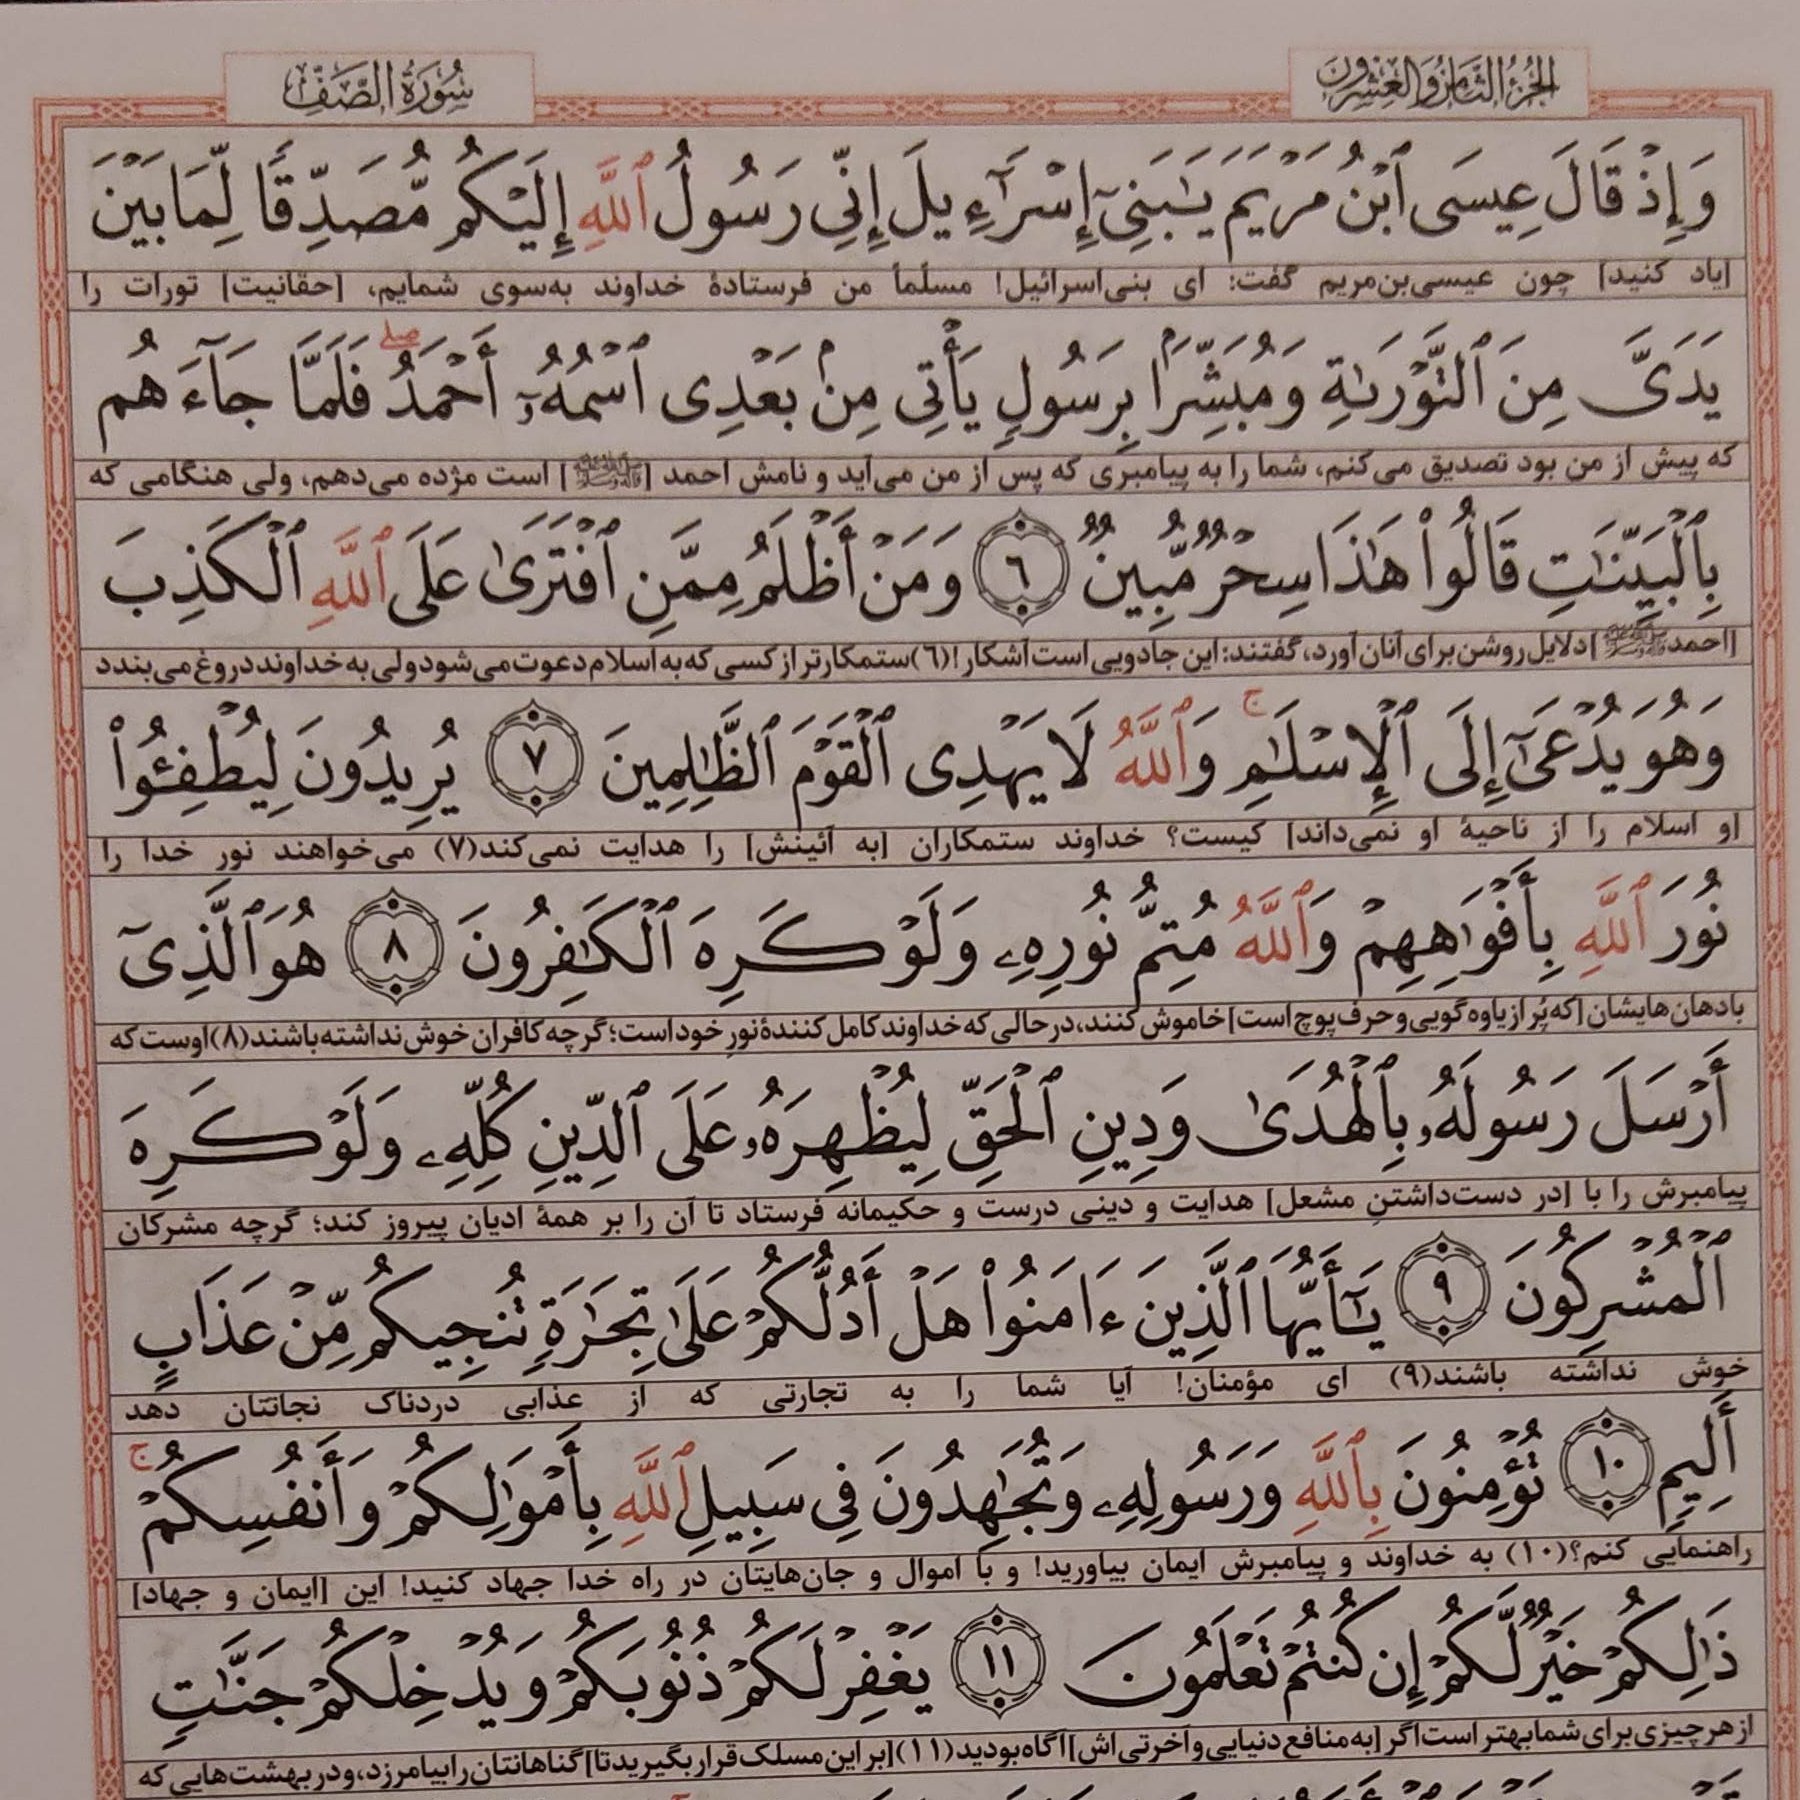 الجزء الثامن والعشرون
سورة الصف
وَإِذْ قَالَ عِيسَى ٱبْنُ مَرْيَمَ يَـٰبَنِىٓ إِسْرَٰٓءِيلَ إِنِّى رَسُولُ ٱللَّهِ إِلَيْكُم مُّصَدِّقًا لِّمَا بَيْنَ
[یاد کنید] چون عیسی‌بن‌مریم گفت: ای بنی‌اسرائیل! مسلّماً من فرستادهٔ خداوند به‌سوی شمایم، [حقانیت] تورات را
يَدَىَّ مِنَ ٱلتَّوْرَىٰةِ وَمُبَشِّرًۢا بِرَسُولٍ يَأْتِى مِنۢ بَعْدِى ٱسْمُهُۥٓ أَحْمَدُ ۖ فَلَمَّا جَآءَهُم
که پیش از من بود تصدیق می‌کنم، شما را به پیامبری که پس از من می‌آید و نامش احمد [ﷺ] است مژده می‌دهم، ولی هنگامی که
بِٱلْبَيِّنَـٰتِ قَالُوا۟ هَـٰذَا سِحْرٌ مُّبِينٌ ٦ وَمَنْ أَظْلَمُ مِمَّنِ ٱفْتَرَىٰ عَلَى ٱللَّهِ ٱلْكَذِبَ
[احمد ﷺ] دلایل روشن برای آنان آورد، گفتند: این جادویی است آشکار! (٦) ستمکارتر از کسی که به اسلام دعوت می‌شود ولی به خداوند دروغ می‌بندد
وَهُوَ يُدْعَىٰٓ إِلَى ٱلْإِسْلَـٰمِ ۚ وَٱللَّهُ لَا يَهْدِى ٱلْقَوْمَ ٱلظَّـٰلِمِينَ ٧ يُرِيدُونَ لِيُطْفِـُٔوا۟
[و اسلام را از ناحیهٔ او نمی‌داند] کیست؟ خداوند ستمکاران [به آئینش] را هدایت نمی‌کند (٧) می‌خواهند نور خدا را
نُورَ ٱللَّهِ بِأَفْوَٰهِهِمْ وَٱللَّهُ مُتِمُّ نُورِهِۦ وَلَوْ كَرِهَ ٱلْكَـٰفِرُونَ ٨ هُوَ ٱلَّذِىٓ
با دهان‌هایشان [که پُر از یاوه‌گویی و حرف پوچ است] خاموش کنند، درحالی‌که خداوند کامل‌کنندهٔ نورِ خود است؛ گرچه کافران خوش نداشته باشند (٨) اوست که
أَرْسَلَ رَسُولَهُۥ بِٱلْهُدَىٰ وَدِينِ ٱلْحَقِّ لِيُظْهِرَهُۥ عَلَى ٱلدِّينِ كُلِّهِۦ وَلَوْ كَرِهَ
پیامبرش را با [در دست‌داشتنِ مشعل] هدایت و دینی درست و حکیمانه فرستاد تا آن را بر همهٔ ادیان پیروز کند؛ گرچه مشرکان
ٱلْمُشْرِكُونَ ٩ يَـٰٓأَيُّهَا ٱلَّذِينَ ءَامَنُوا۟ هَلْ أَدُلُّكُمْ عَلَىٰ تِجَـٰرَةٍ تُنجِيكُم مِّنْ عَذَابٍ
خوش نداشته باشند (٩) ای مؤمنان! آیا شما را به تجارتی که از عذابی دردناک نجاتتان دهد
أَلِيمٍ ١٠ تُؤْمِنُونَ بِٱللَّهِ وَرَسُولِهِۦ وَتُجَـٰهِدُونَ فِى سَبِيلِ ٱللَّهِ بِأَمْوَٰلِكُمْ وَأَنفُسِكُمْ ۚ
راهنمایی کنم؟ (١٠) به خداوند و پیامبرش ایمان بیاورید! و با اموال و جان‌هایتان در راه خدا جهاد کنید! این [ایمان و جهاد]
ذَٰلِكُمْ خَيْرٌ لَّكُمْ إِن كُنتُمْ تَعْلَمُونَ ١١ يَغْفِرْ لَكُمْ ذُنُوبَكُمْ وَيُدْخِلْكُمْ جَنَّـٰتٍ
از هر چیزی برای شما بهتر است اگر [به منافع دنیایی و آخرتی‌اش] آگاه بودید (١١) [بر این مسلک قرار بگیرید تا] گناهانتان را بیامرزد، و در بهشت‌هایی که